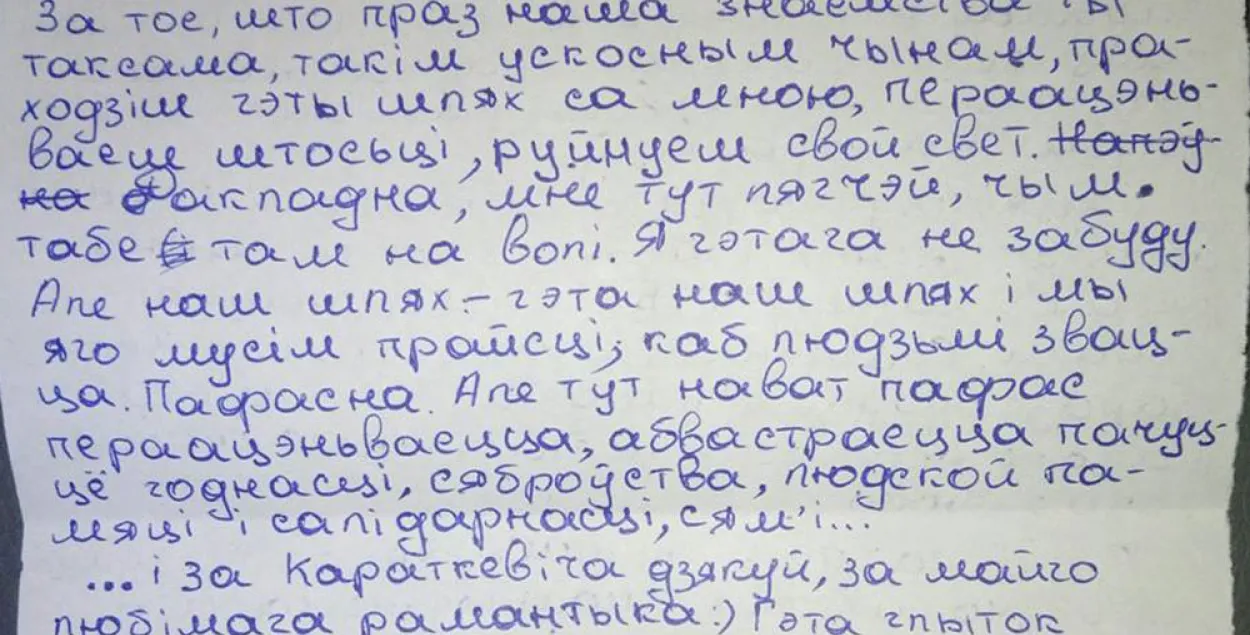 За тое, што праз наша знаемства ты
таксама, такім ускосным чынам, пра-
ходзіш гэты шлях са мною, пераацэнь-
ваеш штосьці, руйнуем свой свет. Напэў-
на Дакладна, мне тут лягчэй, чым
табе там на волі. Я гэтага не забуду.
Але наш шлях – гэта наш шлях і мы
яго мусім прайсці, каб людзьмі звац-
ца. Пафасна. Але тут нават пафас
пераацэньваецца, абвастраецца пачуц-
цё годнасці, сяброўства, людской па-
мяці і салідарнасці, сям'і...
...і за Караткевіча дзякуй, за майго
любімага рамантыка:) Гэта глыток